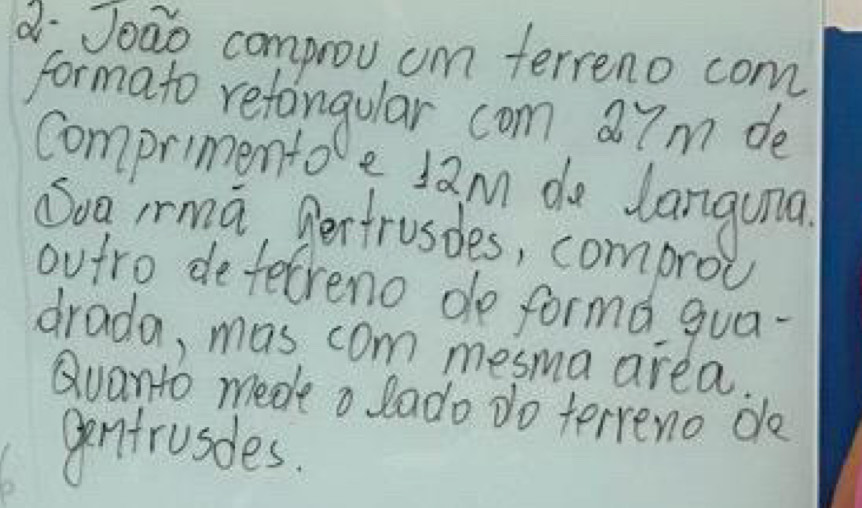 2- João comprou um terreno com
formato retangular com 27m de
Comprimento e 12m de largura.
Sua irmã Gertrusdes, comprou
outro de terreno de forma qua-
drada, mas com mesma area.
Quanto mede o lado do terreno de
gertrusdes.